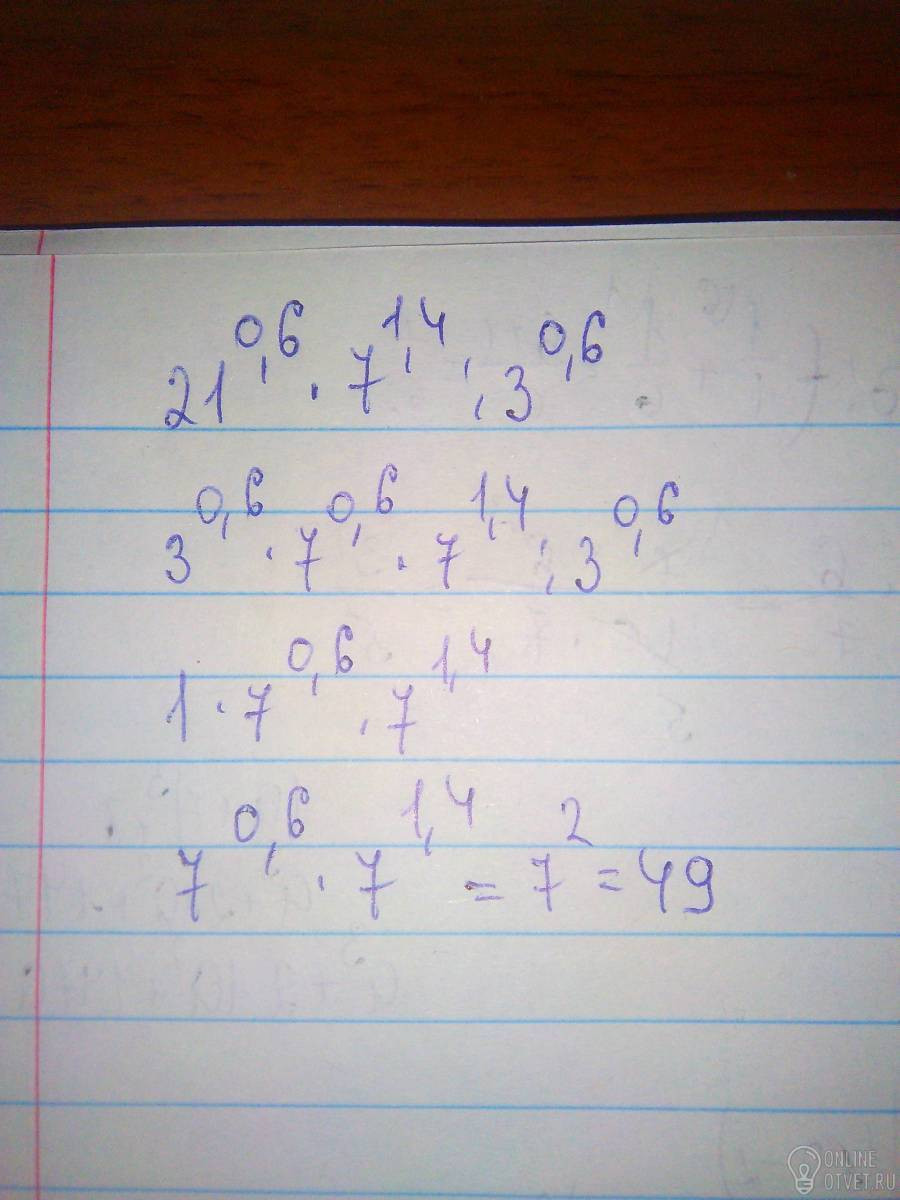 21^0,6 · 7^1,4 : 3^0,6
3^0,6 · 7^0,6 · 7^1,4 : 3^0,6
1 · 7^0,6 · 7^1,4
7^0,6 · 7^1,4 = 7^2 = 49
ONLINE
OTVET.RU